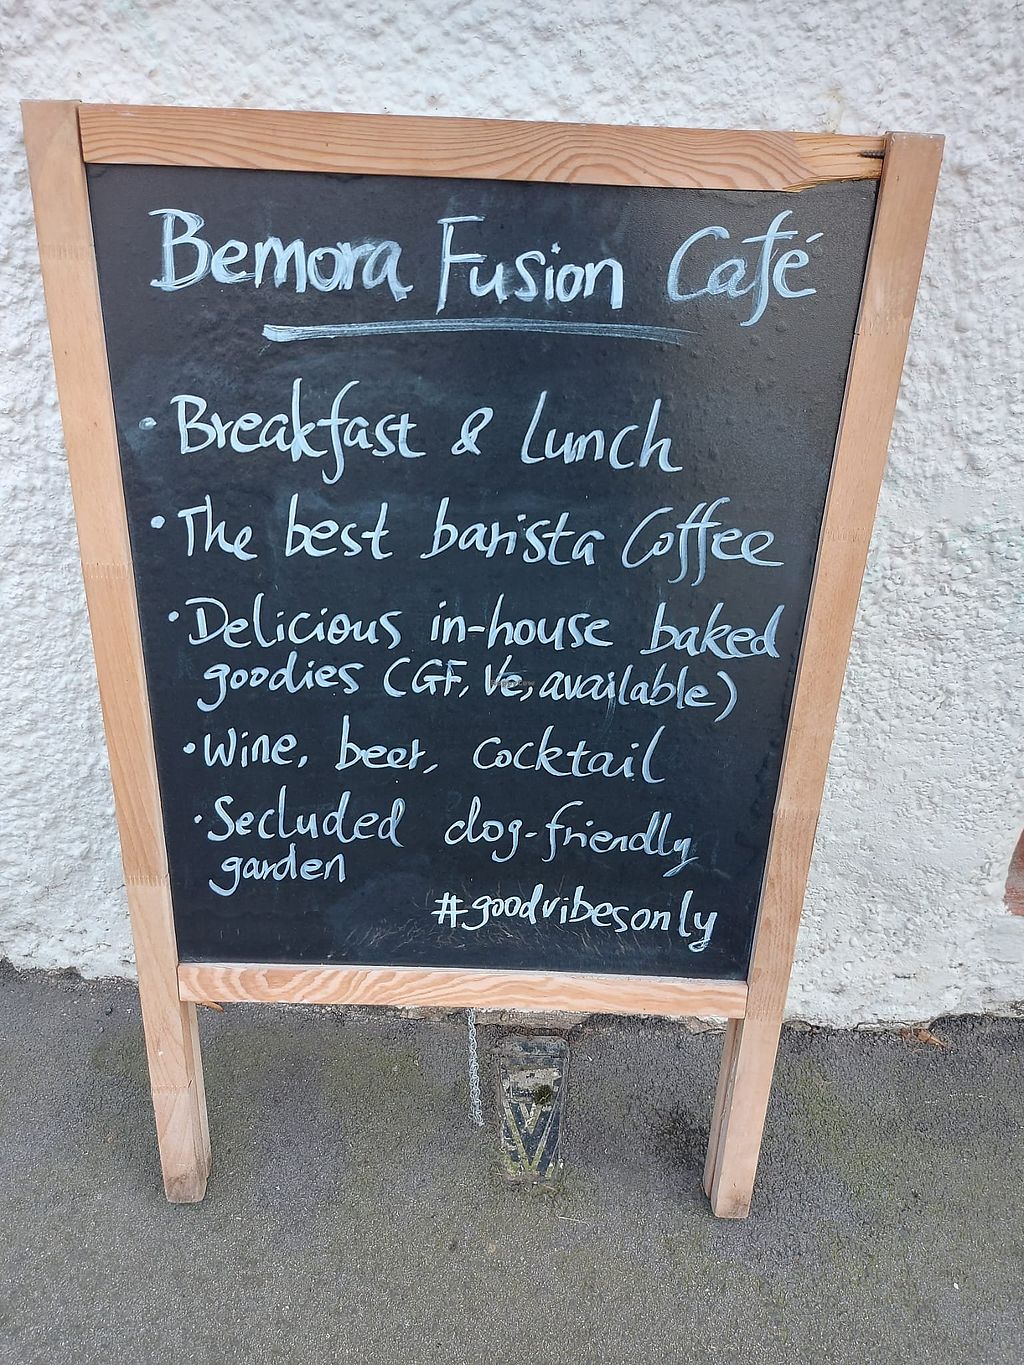 Bemora Fusion Café
• Breakfast & Lunch
• The best barista Coffee
• Delicious in-house baked
goodies (GF, Ve, available)
• Wine, beer, cocktail
• Secluded dog-friendly
garden
#goodvibesonly